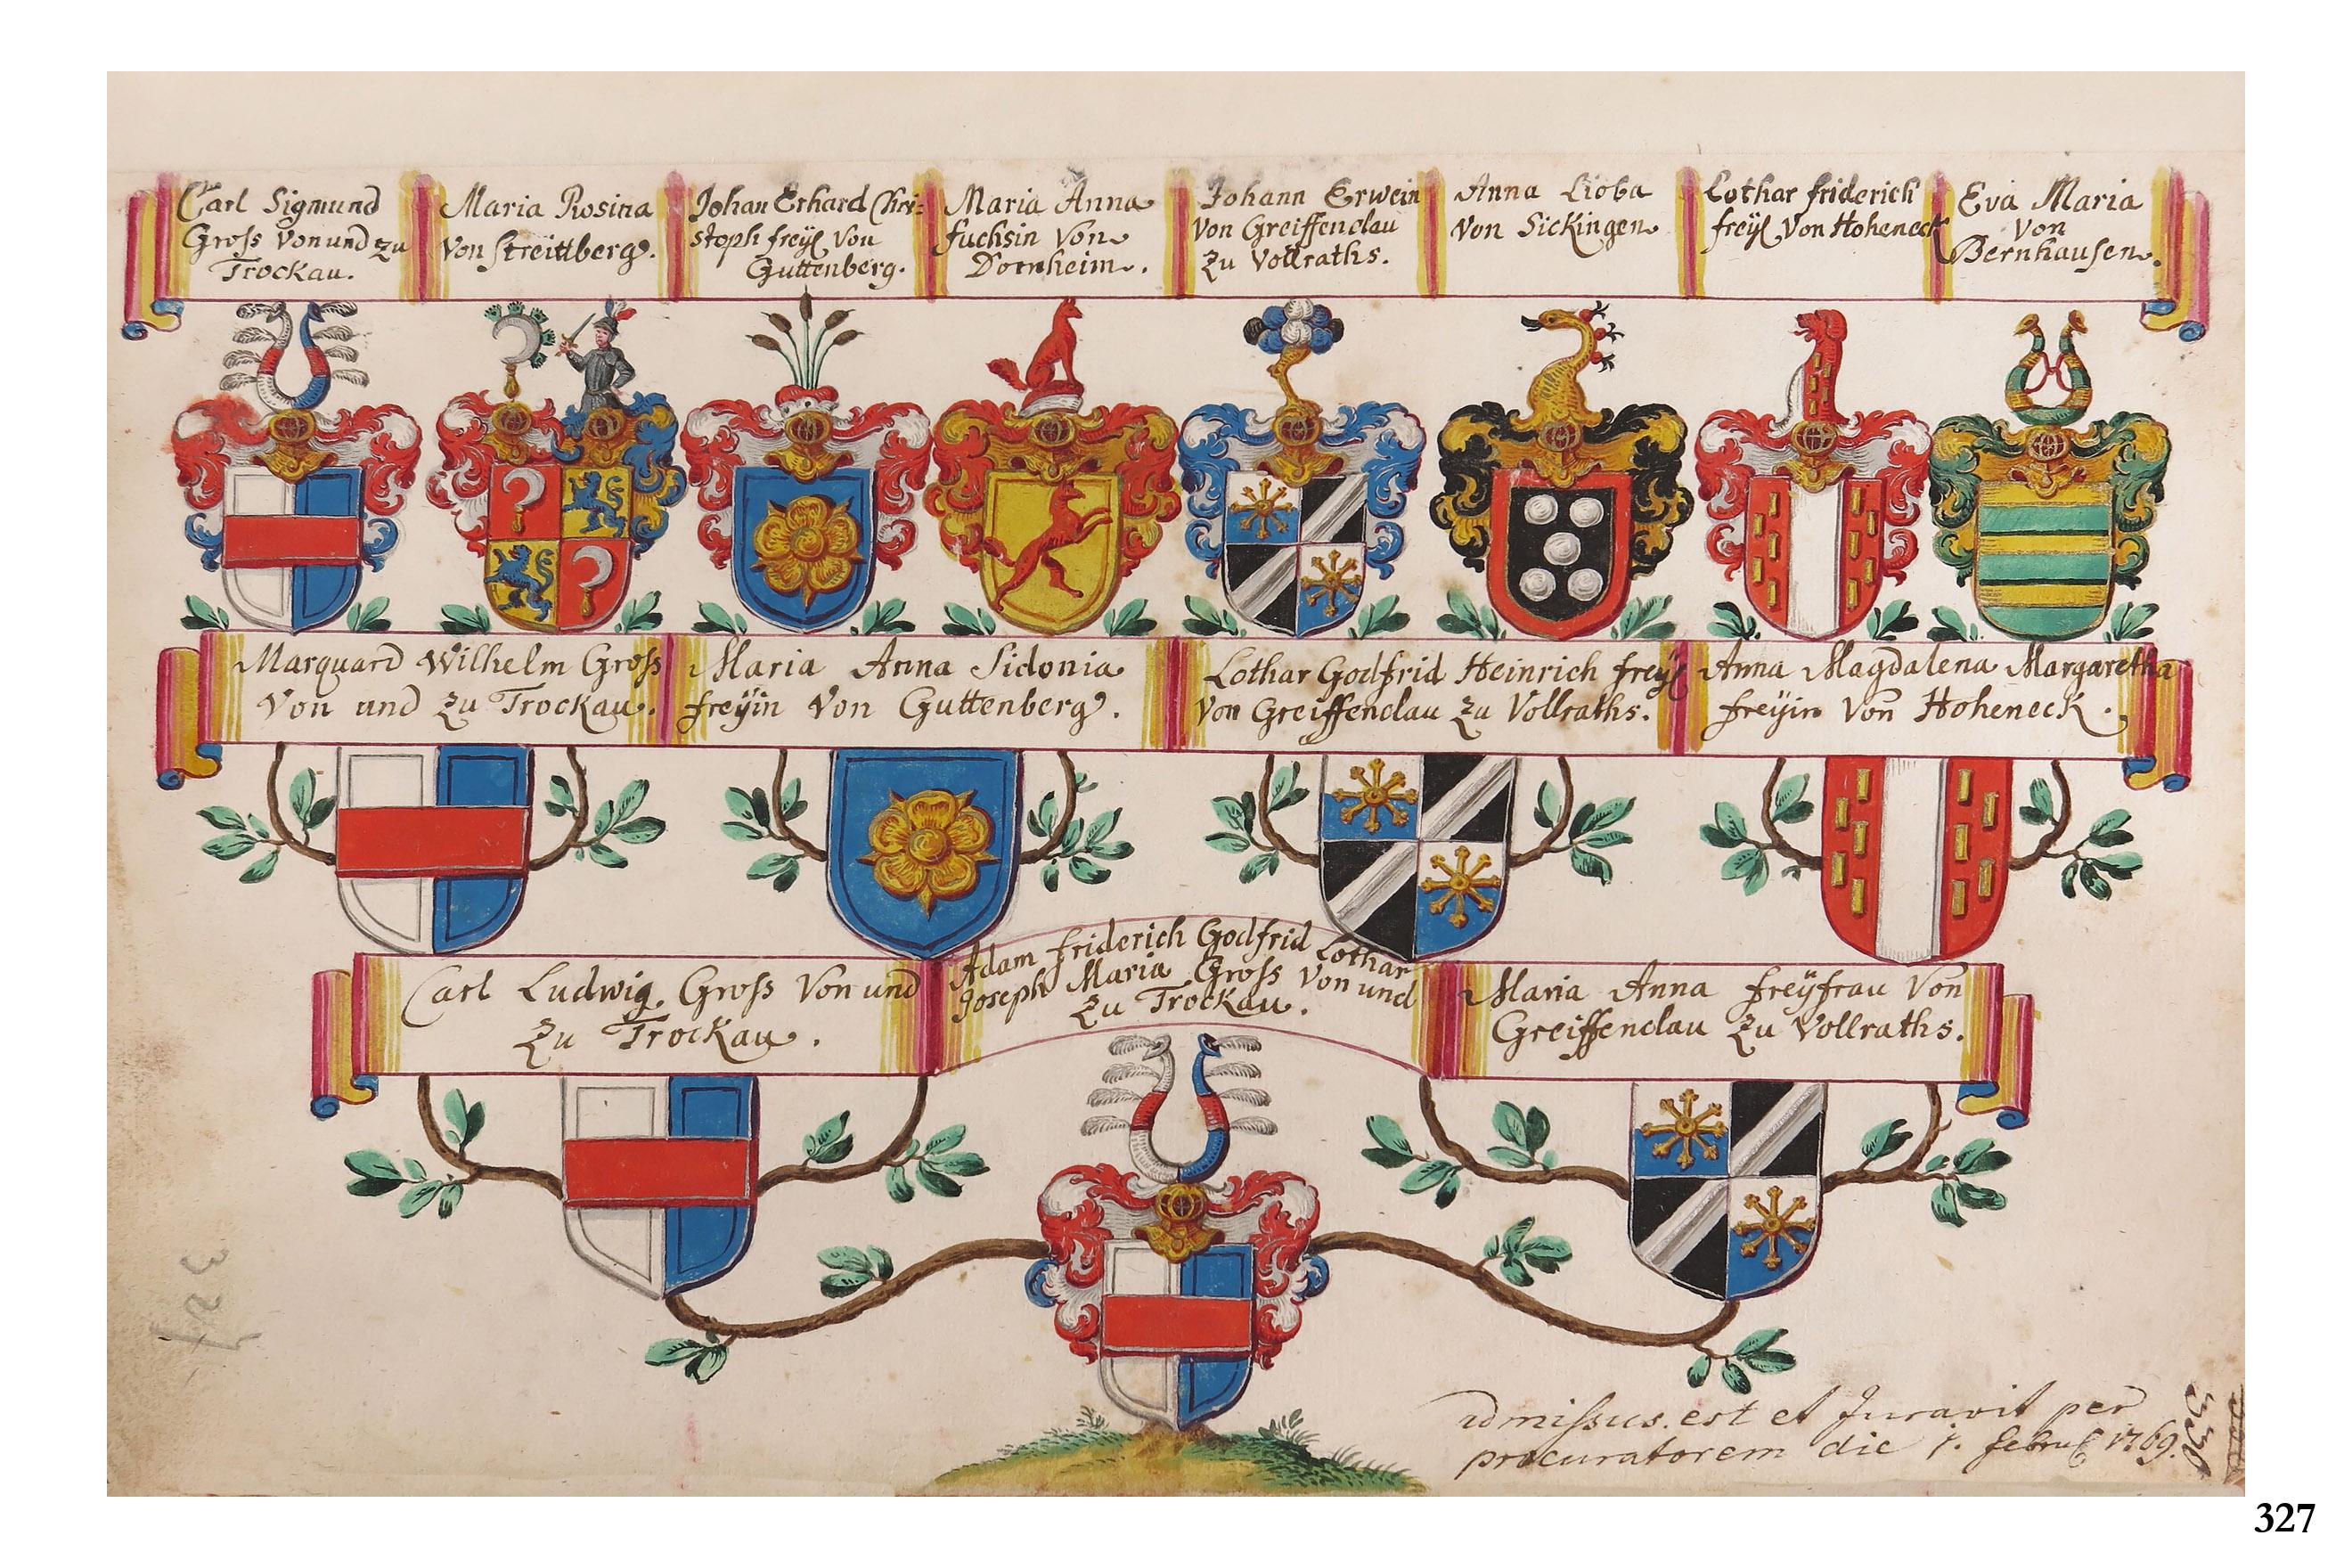 Carl Sigmund
Gross Von und zu
Trockau.
Maria Rosina
Von Streittberg.
Johan Erhard Chri=
stoph freÿl Von
Guttenberg.
Maria Anna
fuchsin Von
Dornheim.
Johann Erwein
Von Greiffenclau
Zu Vollraths.
Anna Lioba
Von Sickingen
Lothar friderich
freÿl Von Hoheneck
Eva Maria
Von
Bernhausen.
Marquard Wilhelm Gross
Von und Zu Trockau.
Maria Anna Sidonia
freÿin Von Guttenberg.
Lothar Godfrid Heinrich freÿl
Von Greiffenclau Zu Vollraths.
Anna Magdalena Margaretha
freÿin Von Hoheneck.
Carl Ludwig. Gross Von und
Zu Trockau.
Adam friderich Godfrid Lothar
Joseph Maria Gross Von und
Zu Trockau.
Maria Anna freÿfrau Von
Greiffenclau Zu Vollraths.
admissus est et Juravit per
procuratorem die 1. febru 1769.
327